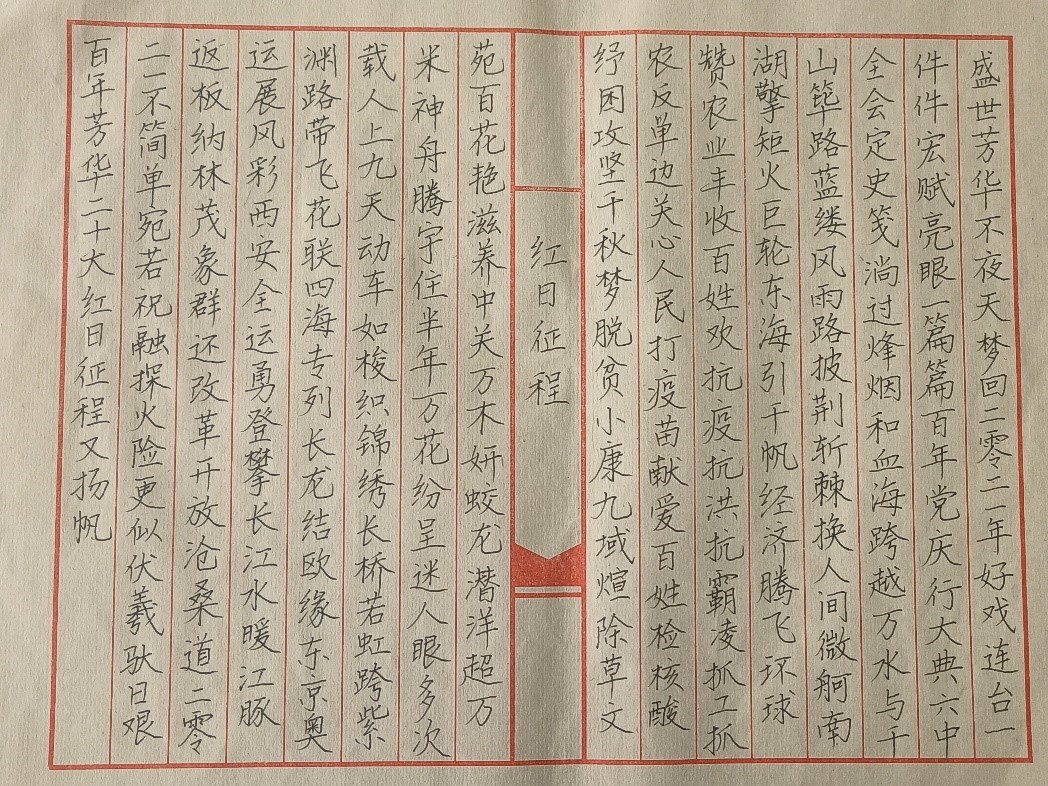 盛世芳华不夜天梦回二零二一年好戏连台一
件件宏赋亮眼一篇篇百年党庆行大典六中
全会定史笺淌过烽烟和血海跨越万水与千
山筚路蓝缕风雨路披荆斩棘换人间微舸南
湖擎矩火巨轮东海引千帆经济腾飞环球
赞农业丰收百姓欢抗疫抗洪抗霸凌抓工抓
农反单边关心人民打疫苗献爱百姓检核酸
纾困攻坚千秋梦脱贫小康九域煊除草文
红日征程
苑百花艳滋养中关万木妍蛟龙潜洋超万
米神舟腾宇住半年万花纷呈迷人眼多次
载人上九天动车如梭织锦绣长桥若虹跨紫
渊路带飞花联四海专列长龙结欧缘东京奥
运展风彩西安全运勇登攀长江水暖江豚
返板纳林茂象群还改革开放沧桑道二零
二一不简单宛若祝融探火险更似伏羲驮日艰
百年芳华二十大红日征程又扬帆